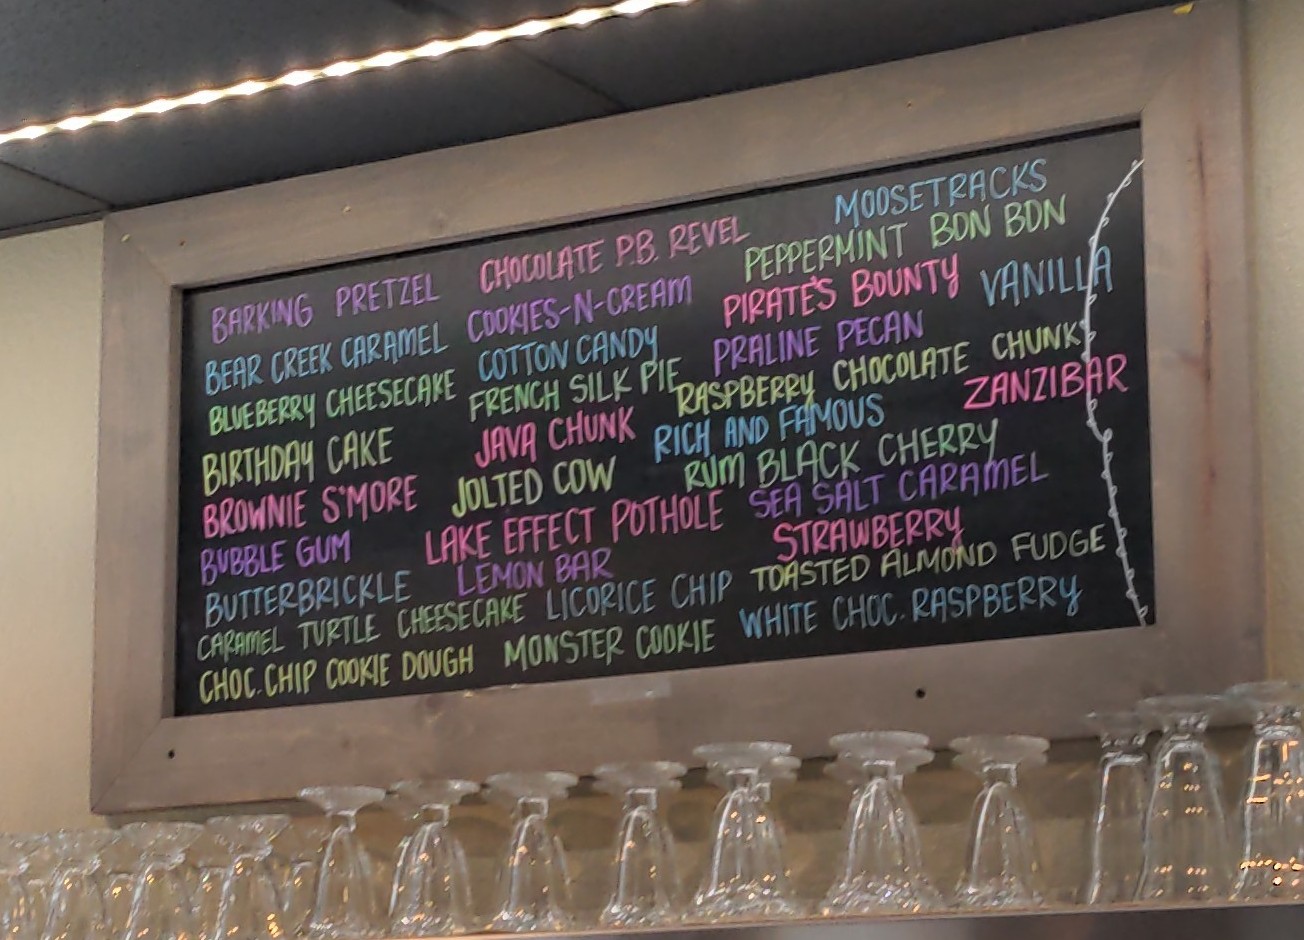 BARKING PRETZEL
BEAR CREEK CARAMEL
BLUEBERRY CHEESECAKE
BIRTHDAY CAKE
BROWNIE S'MORE
BUBBLE GUM
BUTTERBRICKLE
CARAMEL TURTLE CHEESECAKE
CHOC. CHIP COOKIE DOUGH
CHOCOLATE P.B. REVEL
COOKIES-N-CREAM
COTTON CANDY
FRENCH SILK PIE
JAVA CHUNK
JOLTED COW
LAKE EFFECT POTHOLE
LEMON BAR
LICORICE CHIP
MONSTER COOKIE
MOOSETRACKS
PEPPERMINT BON BON
PIRATE'S BOUNTY
PRALINE PECAN
RASPBERRY CHOCOLATE CHUNK
RICH AND FAMOUS
RUM BLACK CHERRY
SEA SALT CARAMEL
STRAWBERRY
TOASTED ALMOND FUDGE
WHITE CHOC. RASPBERRY
VANILLA
ZANZIBAR